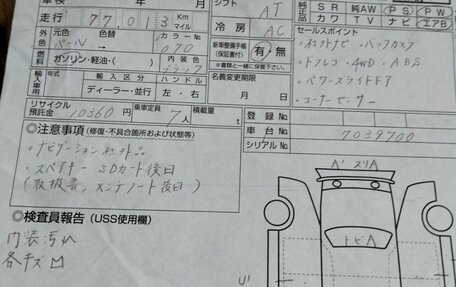 車検 年 月
シフト AT
走行 77,013 Km マイル
冷房 AC
純正品 SR 純AW PS PW
カワ TV ナビ エアB
外色 元色 パール 色替 カラーNo 070
新車整備手帳(保証書付) 有・無
※書類と一緒に保管して下さい。
燃料 ガソリン・軽油・( ) 内装色 ブラック
輸入車用 ディーラー・並行 ハンドル 左・右
名義変更期限
年 月 日
セールスポイント
・社外ナビ ・バックカメラ
・ドラレコ ・4WD ・ABS
・パワースライドドア
・コーナーセンサー
リサイクル預託金 10360円 乗車定員 7人 積載量 t
登録No.
車台No. 7039700
シリアルNo.
◎注意事項(修復・不具合箇所および状態等)
・ナビゲーション社外品
・スペアキー SDカード後日
(取扱書、メンテノート後日)
◎検査員報告(USS使用欄)
内装汚れ
各キズ凹
A' スリA
トビA
U'